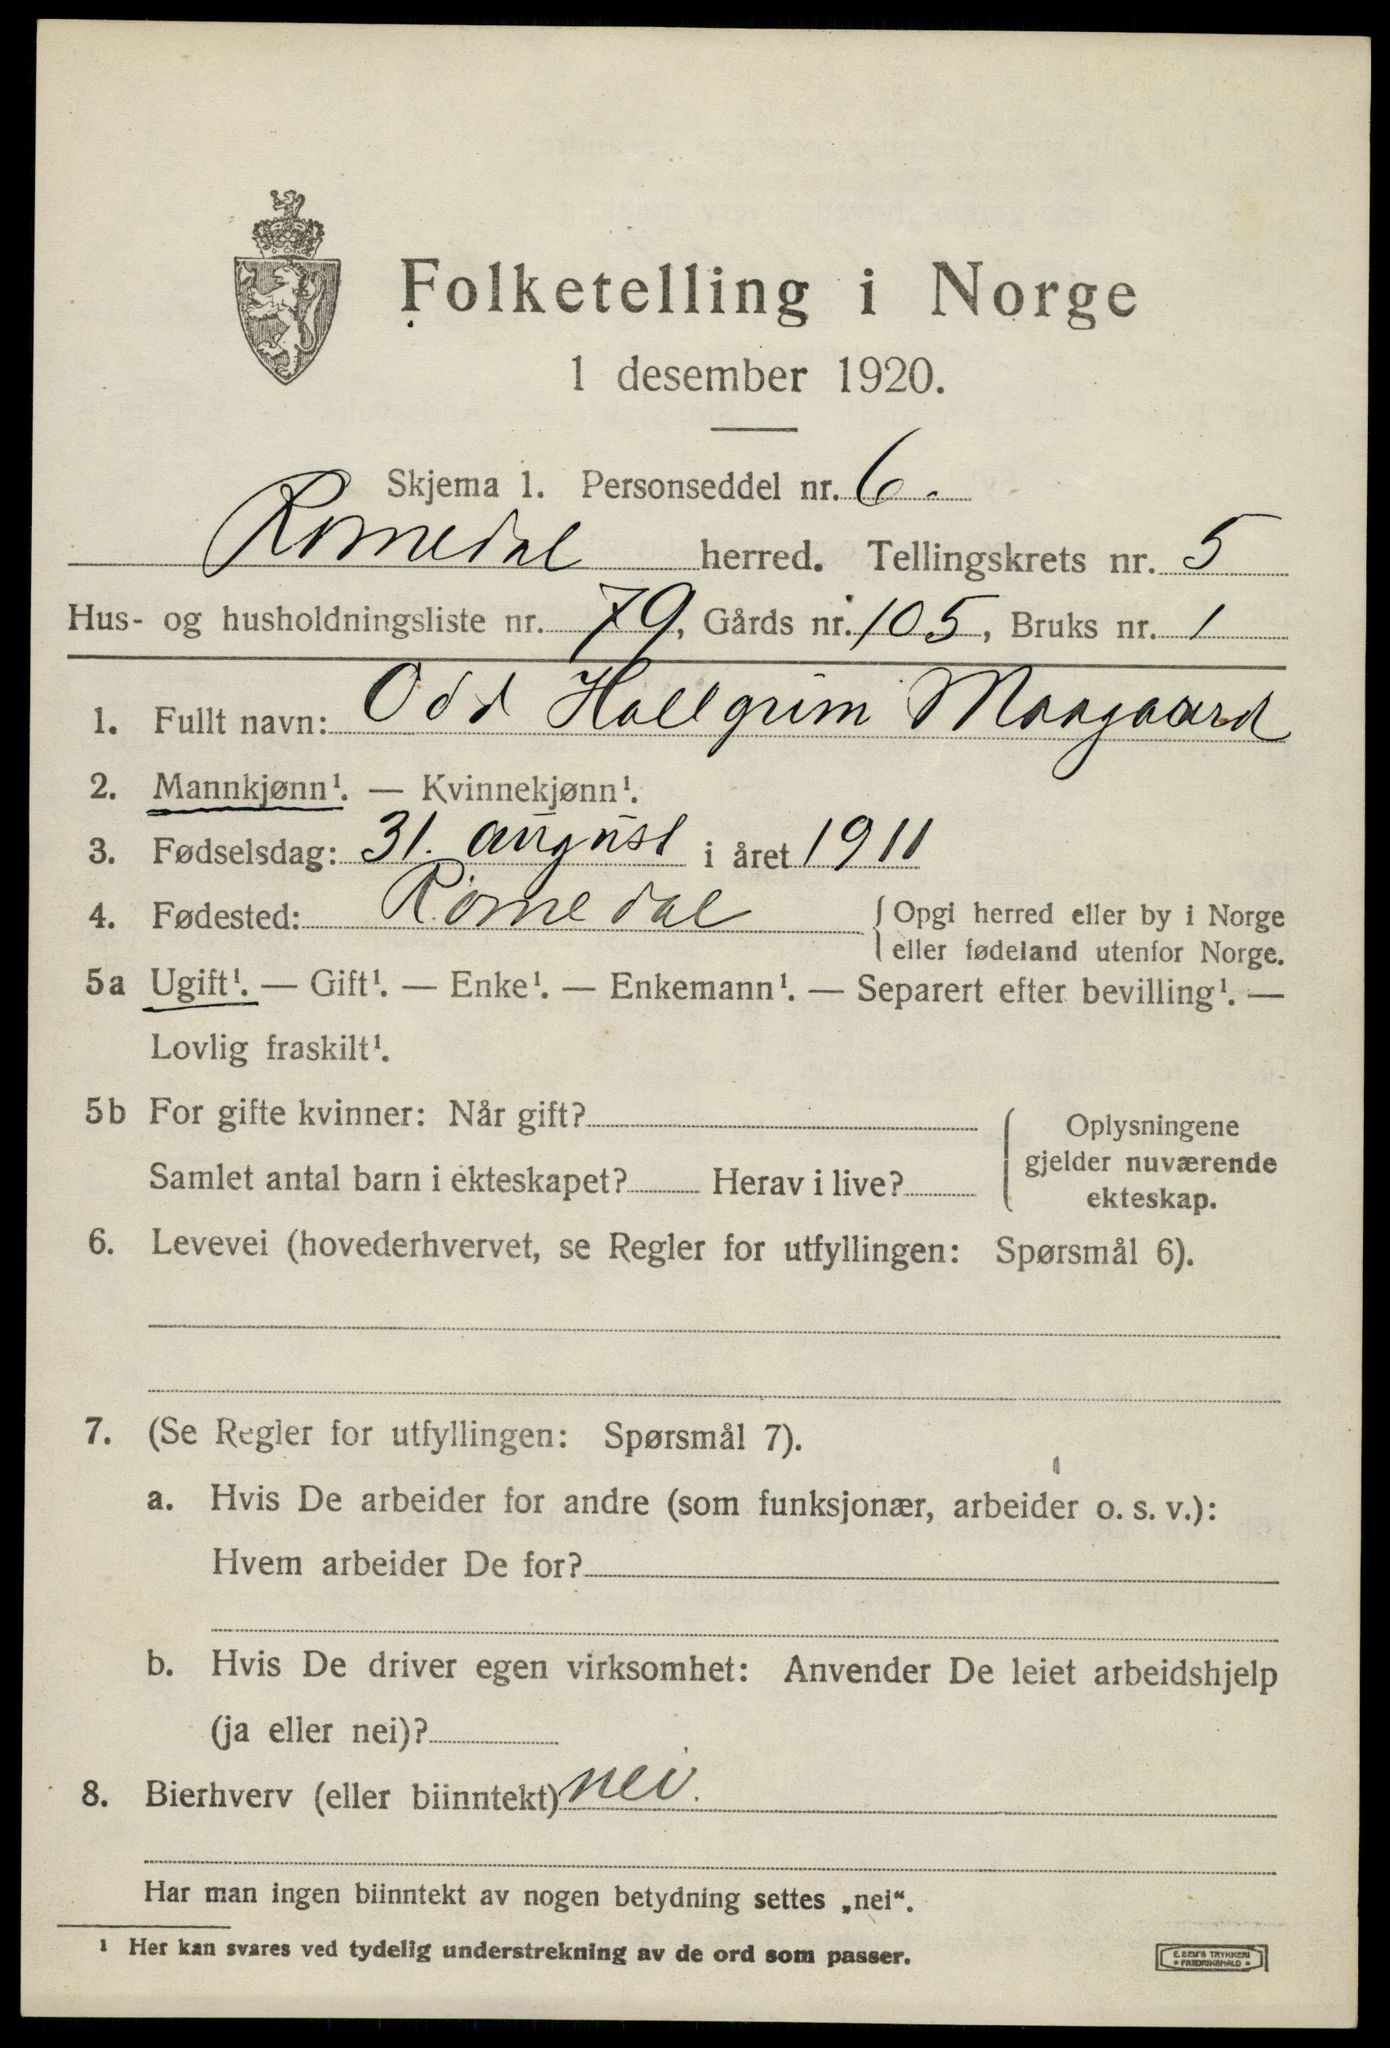 Folketelling i Norge
1 desember 1920.
Skjema 1. Personseddel nr. 6.
Romedal herred. Tellingskrets nr. 5
Hus- og husholdningsliste nr. 79, Gårds nr. 105, Bruks nr. 1
1. Fullt navn: Odd Hallgrim Maagaard
2. Mannkjønn¹. — Kvinnekjønn¹.
3. Fødselsdag: 31. august i året 1911
4. Fødested: Romedal { Opgi herred eller by i Norge
eller fødeland utenfor Norge.
5a Ugift¹. — Gift¹. — Enke¹. — Enkemann¹. — Separert efter bevilling¹. —
Lovlig fraskilt¹.
5b For gifte kvinner: Når gift?
Samlet antal barn i ekteskapet? Herav i live?
Oplysningene
gjelder nuværende
ekteskap.
6. Levevei (hovederhvervet, se Regler for utfyllingen: Spørsmål 6).
7. (Se Regler for utfyllingen: Spørsmål 7).
a. Hvis De arbeider for andre (som funksjonær, arbeider o. s. v.):
Hvem arbeider De for?
b. Hvis De driver egen virksomhet: Anvender De leiet arbeidshjelp
(ja eller nei)?
8. Bierhverv (eller biinntekt) nei.
Har man ingen biinntekt av nogen betydning settes „nei“.
¹ Her kan svares ved tydelig understrekning av de ord som passer.
E. SEM'S TRYKKERI
FREDRIKSHALD